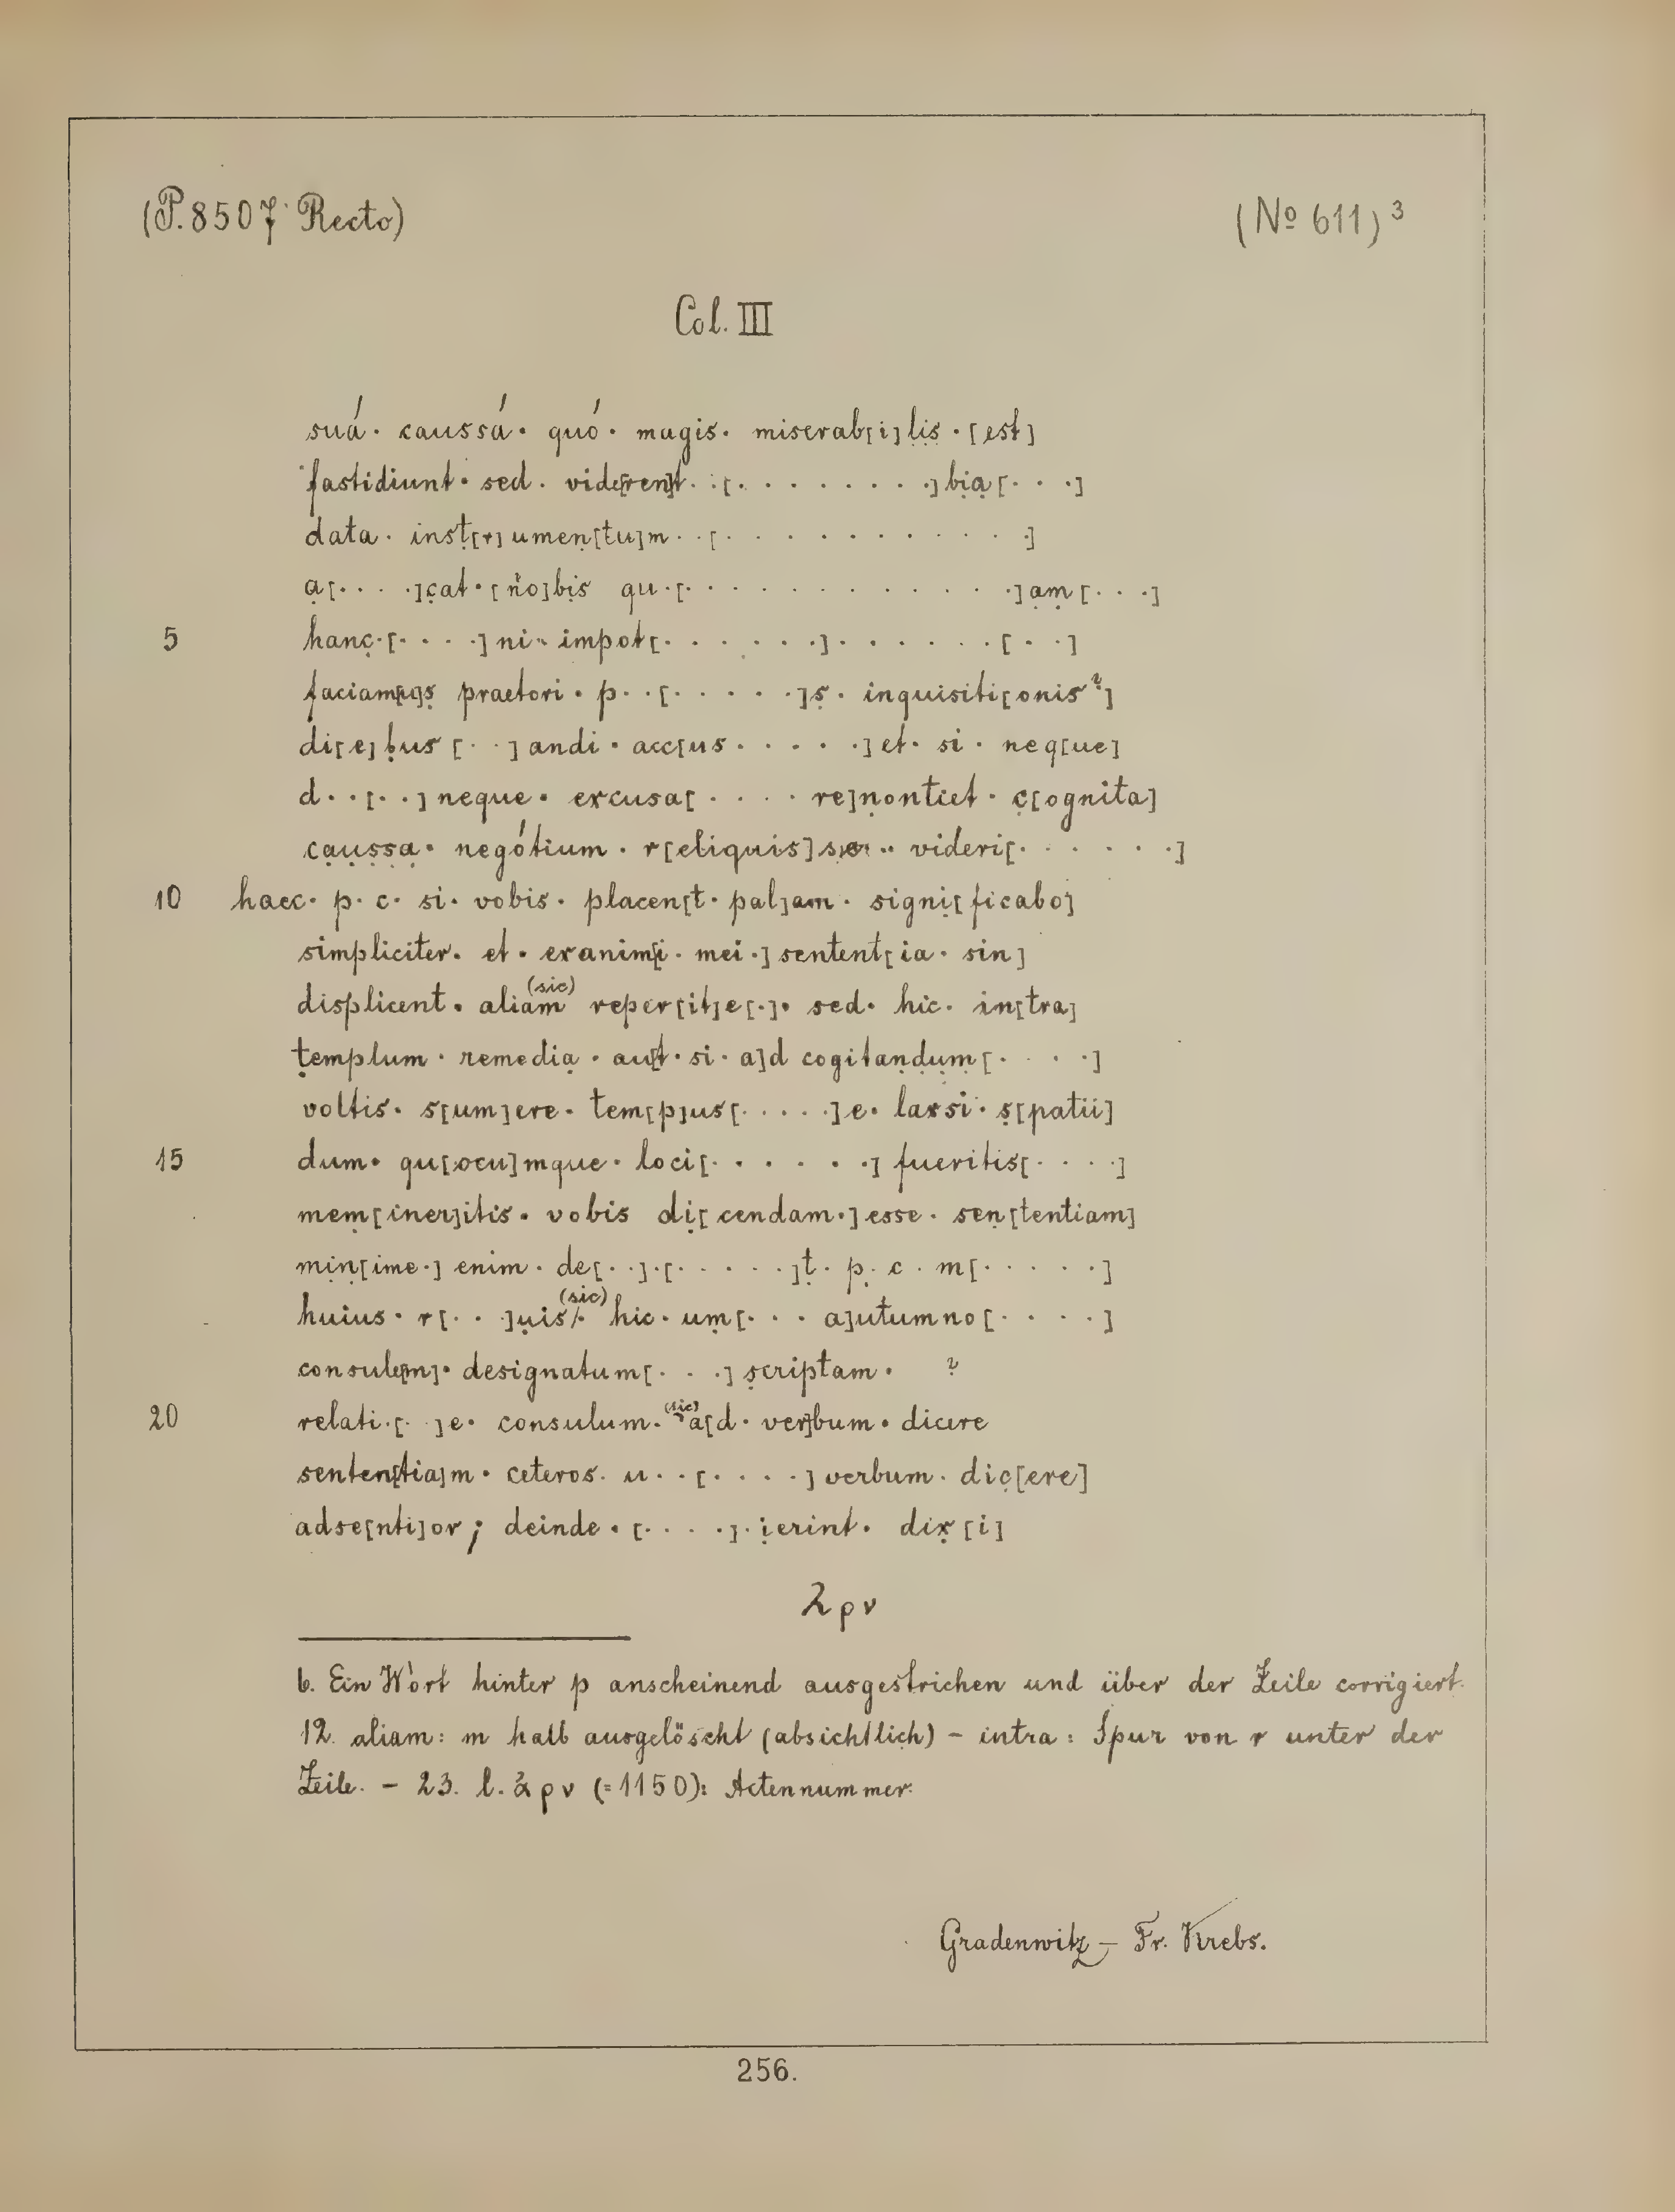 (P. 8507 Recto)
(No 611) 3
Col. III
suá · caussá · quó · magis · miserab[i]lis · [est]
fastidiunt · sed · vide[ren]t · ·[· · · · · · · ·]bia[· · ·]
data · inst[r]umen[tu]m · ·[· · · · · · · · · · ·]
a[· · · ·]cat · [no]bis qu·[· · · · · · · · · · · ·]am[· · ·]
5 hanc·[· · · ·]ni·· impot[· · · · · ·]· · · · · · ·[· ·]
faciam[u]s praetori · p· ·[· · · · ·]s · inquisiti[onis?]
di[e]bus [· ·]andi · acc[us · · · · ·]et · si · neq[ue]
d· ·[· ·]neque · excusa[ · · · · re]nontiet · c[ognita]
caussa · negótium · r[eliquis]se·· videri[· · · · · ·]
10 haec · p · c · si · vobis · placen[t · pal]am · signi[ficabo]
simpliciter · et · exanim[i · mei ·]sentent[ia · sin]
displicent · aliam (sic) reper[it]e[·]· sed · hic · in[tra]
templum · remedia · au[t · si · a]d cogitandum[· · · ·]
voltis · s[um]ere · tem[p]us[· · · · ·]e · laxsi · s[patii]
15 dum · qu[ocu]mque · loci[· · · · · · ·] fueritis[· · · ·]
mem[iner]itis · vobis di[cendam ·]esse · sen[tentiam]
min[ime ·] enim · de[· ·]·[· · · · ·]t · p · c · m[· · · · ·]
huius · r[· · ·]uis/· (sic) hic · um[· · · a]utumno[· · · ·]
consule[m]· designatum[· · ·] scriptam · ?
20 relati·[· ]e · consulum · (sic) a[d · ver]bum · dicere
senten[tia]m · ceteros · u · ·[· · · ·] verbum · dic[ere]
adse[nti]or ; deinde · [· · · ·]·ierint · dix[i]
λρν
6. Ein Wort hinter p anscheinend ausgestrichen und über der Zeile corrigiert.
12. aliam: m halb ausgelöscht (absichtlich) – intra: Spur von r unter der
Zeile. – 23. l. ͵αρν (=1150): Actennummer.
Gradenwitz – Fr. Krebs.
256.